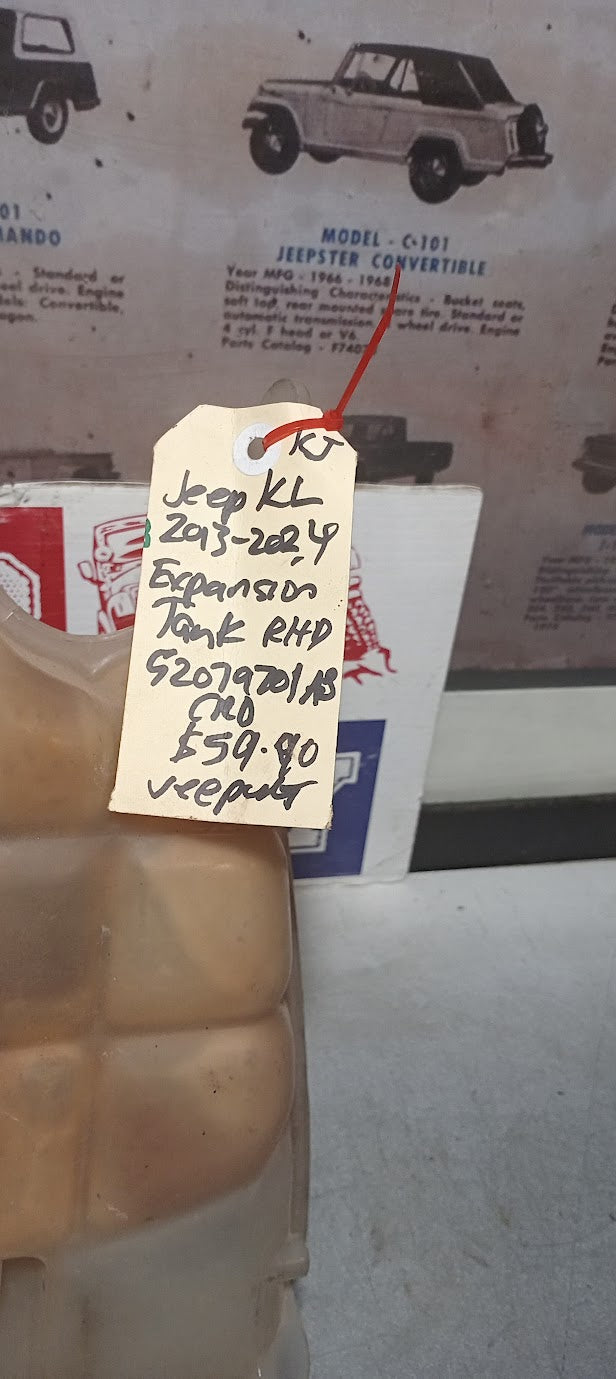 01
MANDO
- Standard or
eel drive. Engine
dels: Convertible,
agon.
MODEL - C-101
JEEPSTER CONVERTIBLE
Year MFG - 1966 - 1968
Distinguishing Characteristics - Bucket seats,
soft top, rear mounted spare tire. Standard or
automatic transmission, wheel drive. Engine
4 cyl. F head or V6.
Parts Catalog - F7407
KJ
Jeep KL
2013-2024
Expansion
Tank RHD
52079701AB
CRD
$59.90
veepart